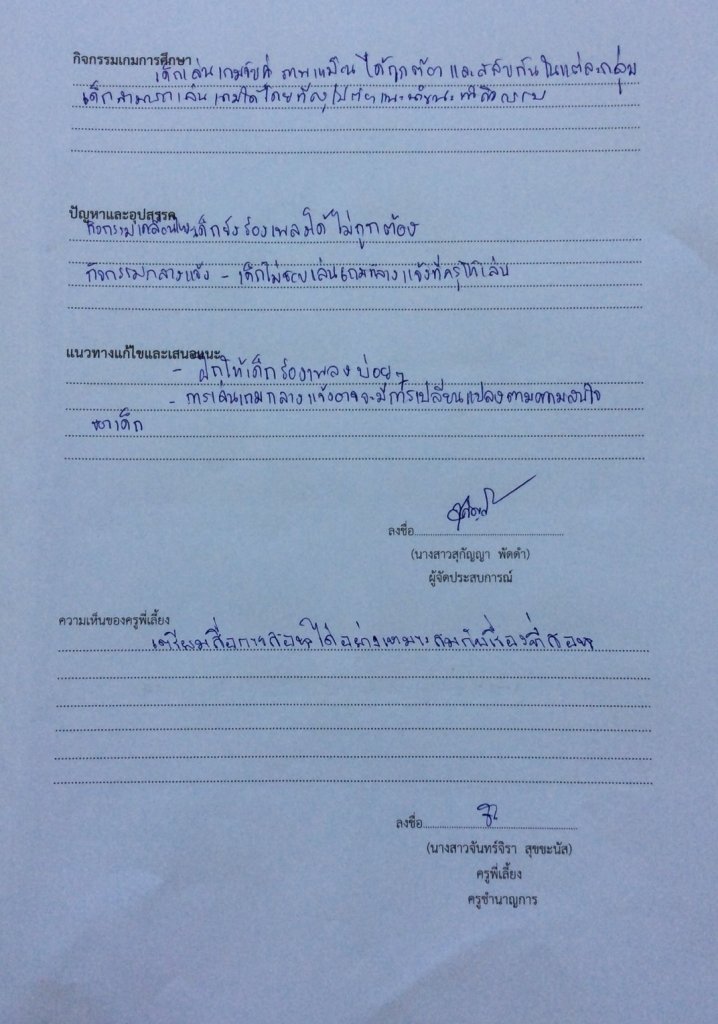 กิจกรรมเกมการศึกษา
เด็กเล่นเกมจับคู่ ภาพเหมือน ได้ถูกต้อง และสลับกันในแต่ละกลุ่ม
เด็กสามารถเล่นเกมได้โดยที่ครูไม่ต้อง
ปัญหาและอุปสรรค
กิจกรรมเคลื่อนไหว เด็กยังร้องเพลงได้ไม่ถูกต้อง
กิจกรรมกลางแจ้ง - เด็กไม่ชอบเล่นเกมกลางแจ้งที่ครูให้เล่น
แนวทางแก้ไขและเสนอแนะ
- ฝึกให้เด็กร้องเพลงบ่อยๆ
- การเล่นเกมกลางแจ้งอาจจะมีการเปลี่ยนแปลงตามความสนใจ
ของเด็ก
ลงชื่อ
(นางสาวสุกัญญา พัดดำ)
ผู้จัดประสบการณ์
ความเห็นของครูพี่เลี้ยง
เตรียมสื่อการสอนได้อย่างเหมาะสมกับเรื่องที่สอน
ลงชื่อ
(นางสาวจันทร์จิรา สุขขะนัส)
ครูพี่เลี้ยง
ครูชำนาญการ